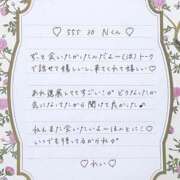 ♡ 555 30 Nくん ♡
ずっと会いたかったんだよー(泣)トーク
で話せて嬉しいし、来てくれて嬉しい♡
あれ最高ってすごい♡が どうなしたか
気になしてたから 聞けて良かった♪
私もまた会いたいよーほんとに♡
いつでも待ってるからね♡
♡れい♡